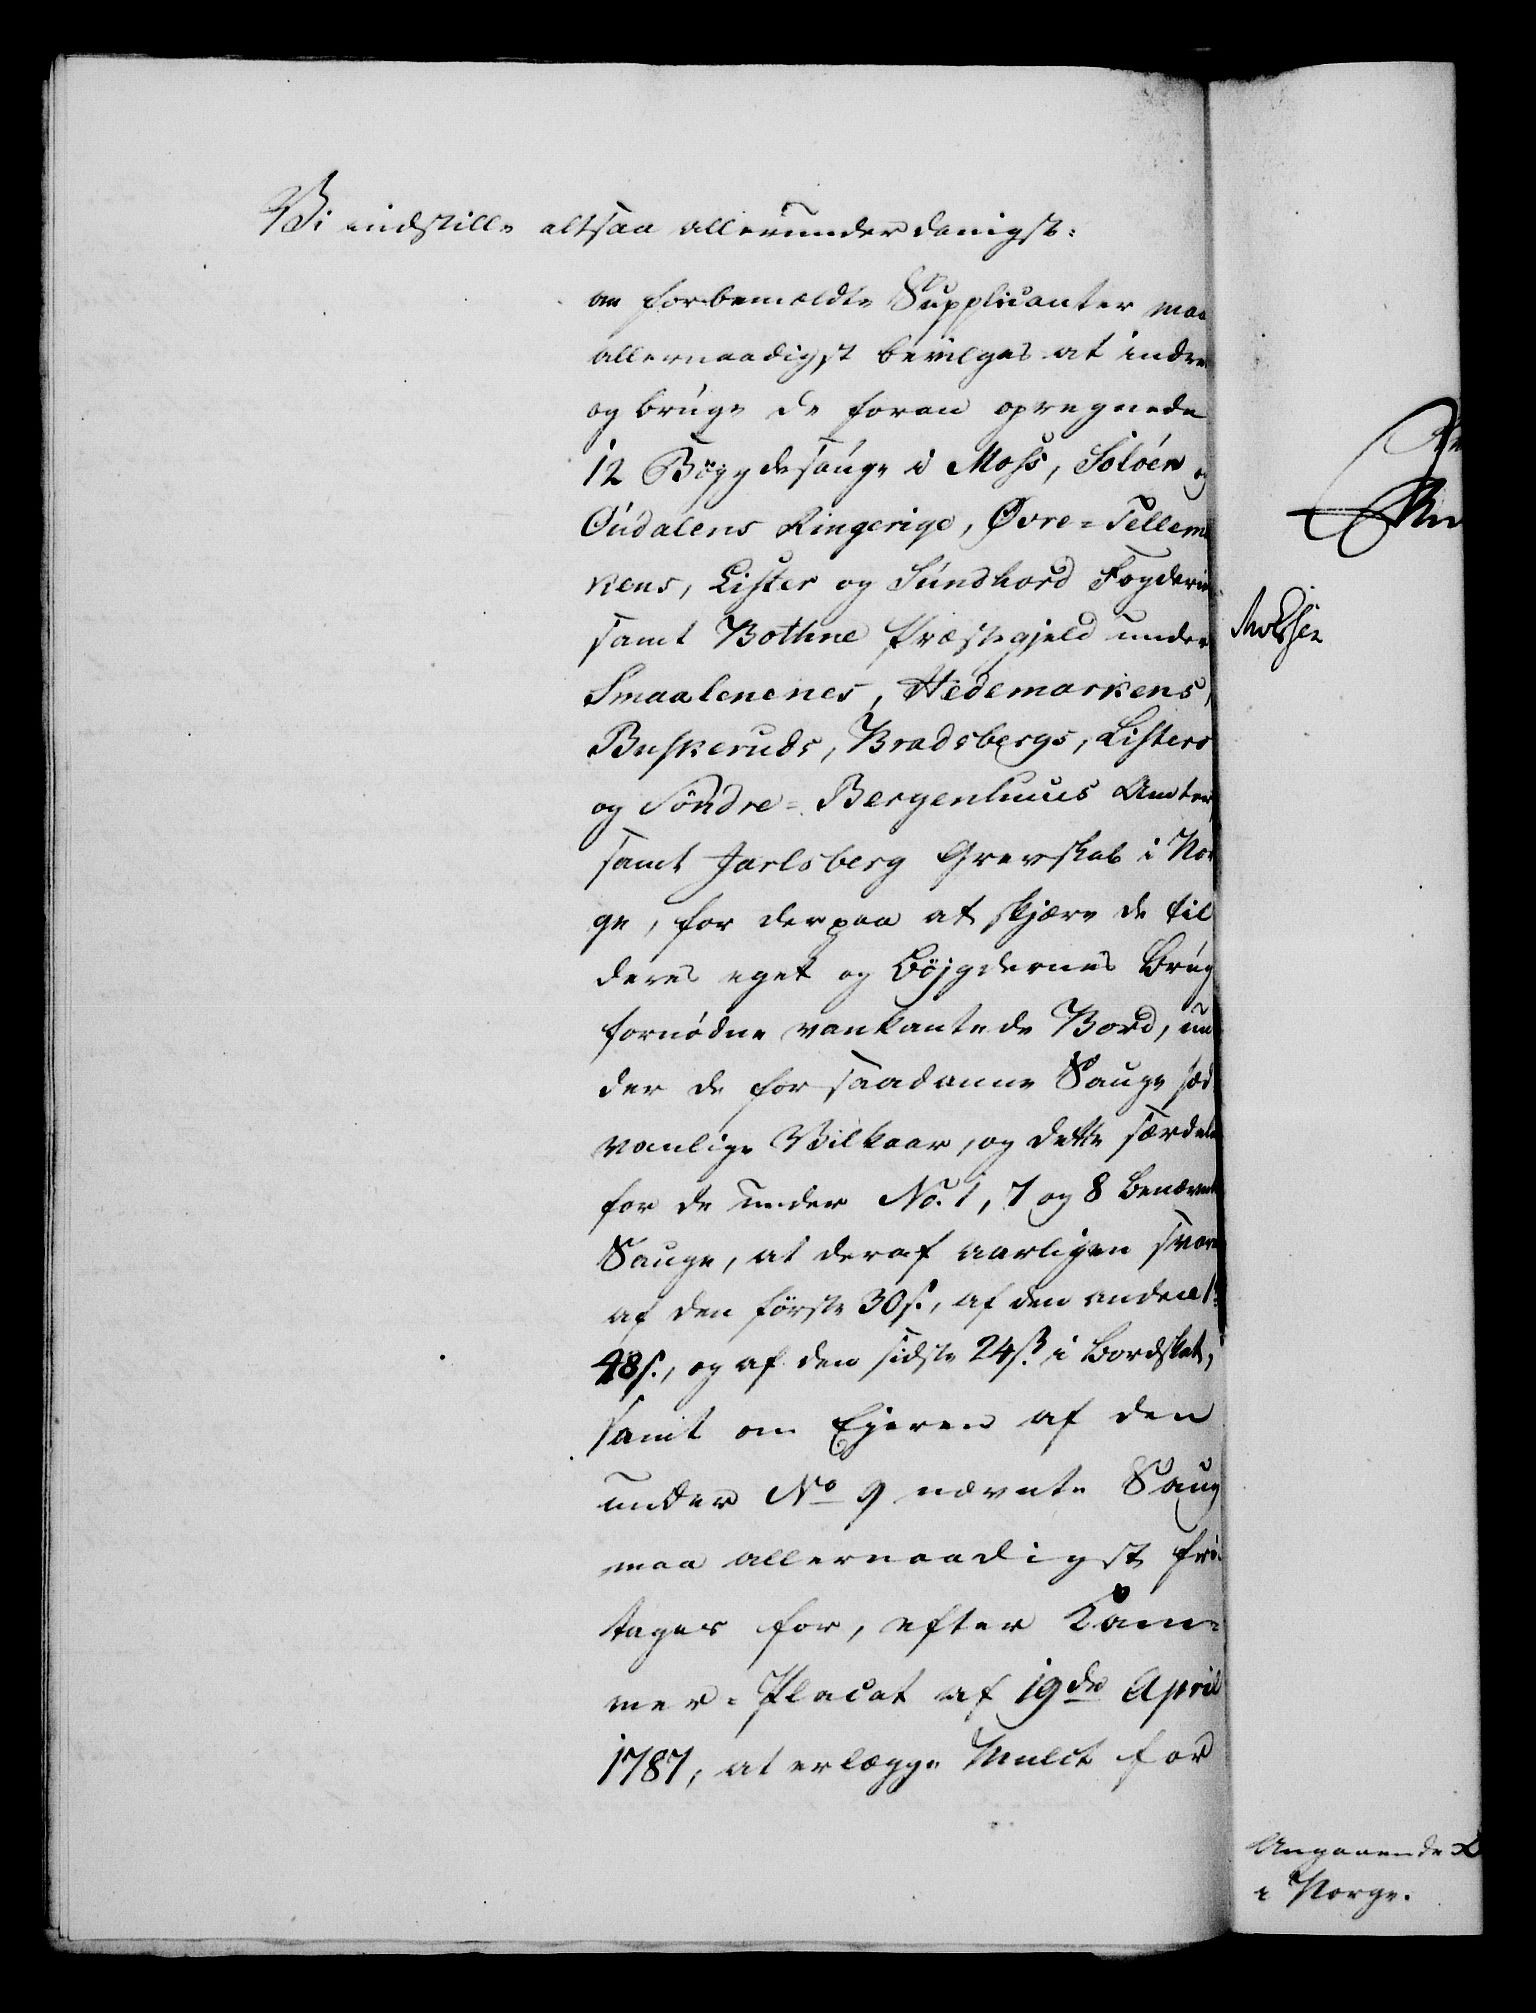 Vi indstille altsaa allerunderdanigst:
om forbemeldte Supplicanter maa
allernaadigst bevilges at indre
og bruge de foran opregnede
12 Böygdesauge i Moss, Soløer og
Oudalens Ringerige, Øvre-Tellema
kens, Lister og Sundhord Fogderie
samt Bothne Præstegjeld under
Smaalenenes, Hedemarkens,
Buskeruds, Bradsbergs, Listers
og Søndre-Bergenhuus Amter,
samt Jarlsberg Grevskab i Nor
ge, for derpaa at skjære de til
deres eget og Böjgdernes Brug
fornødne vankantede Bord, un
der de for saadanne Sauge sæd
vanlige Vilkaar, og dette særdeles
for de under No. 1, 7 og 8 benævnte
Sauge, at deraf aarligen svare
af den første 30 s., af den anden
48 s., og af den sidste 24 s. i Bordskat,
samt om Ejeren af den
under No 9 nævnte Saug
maa allernaadigst fri-
tages for, efter Kam-
mer-Placat af 19de April
1787, at erlægge Mulct for
Angaaende
i Norge.